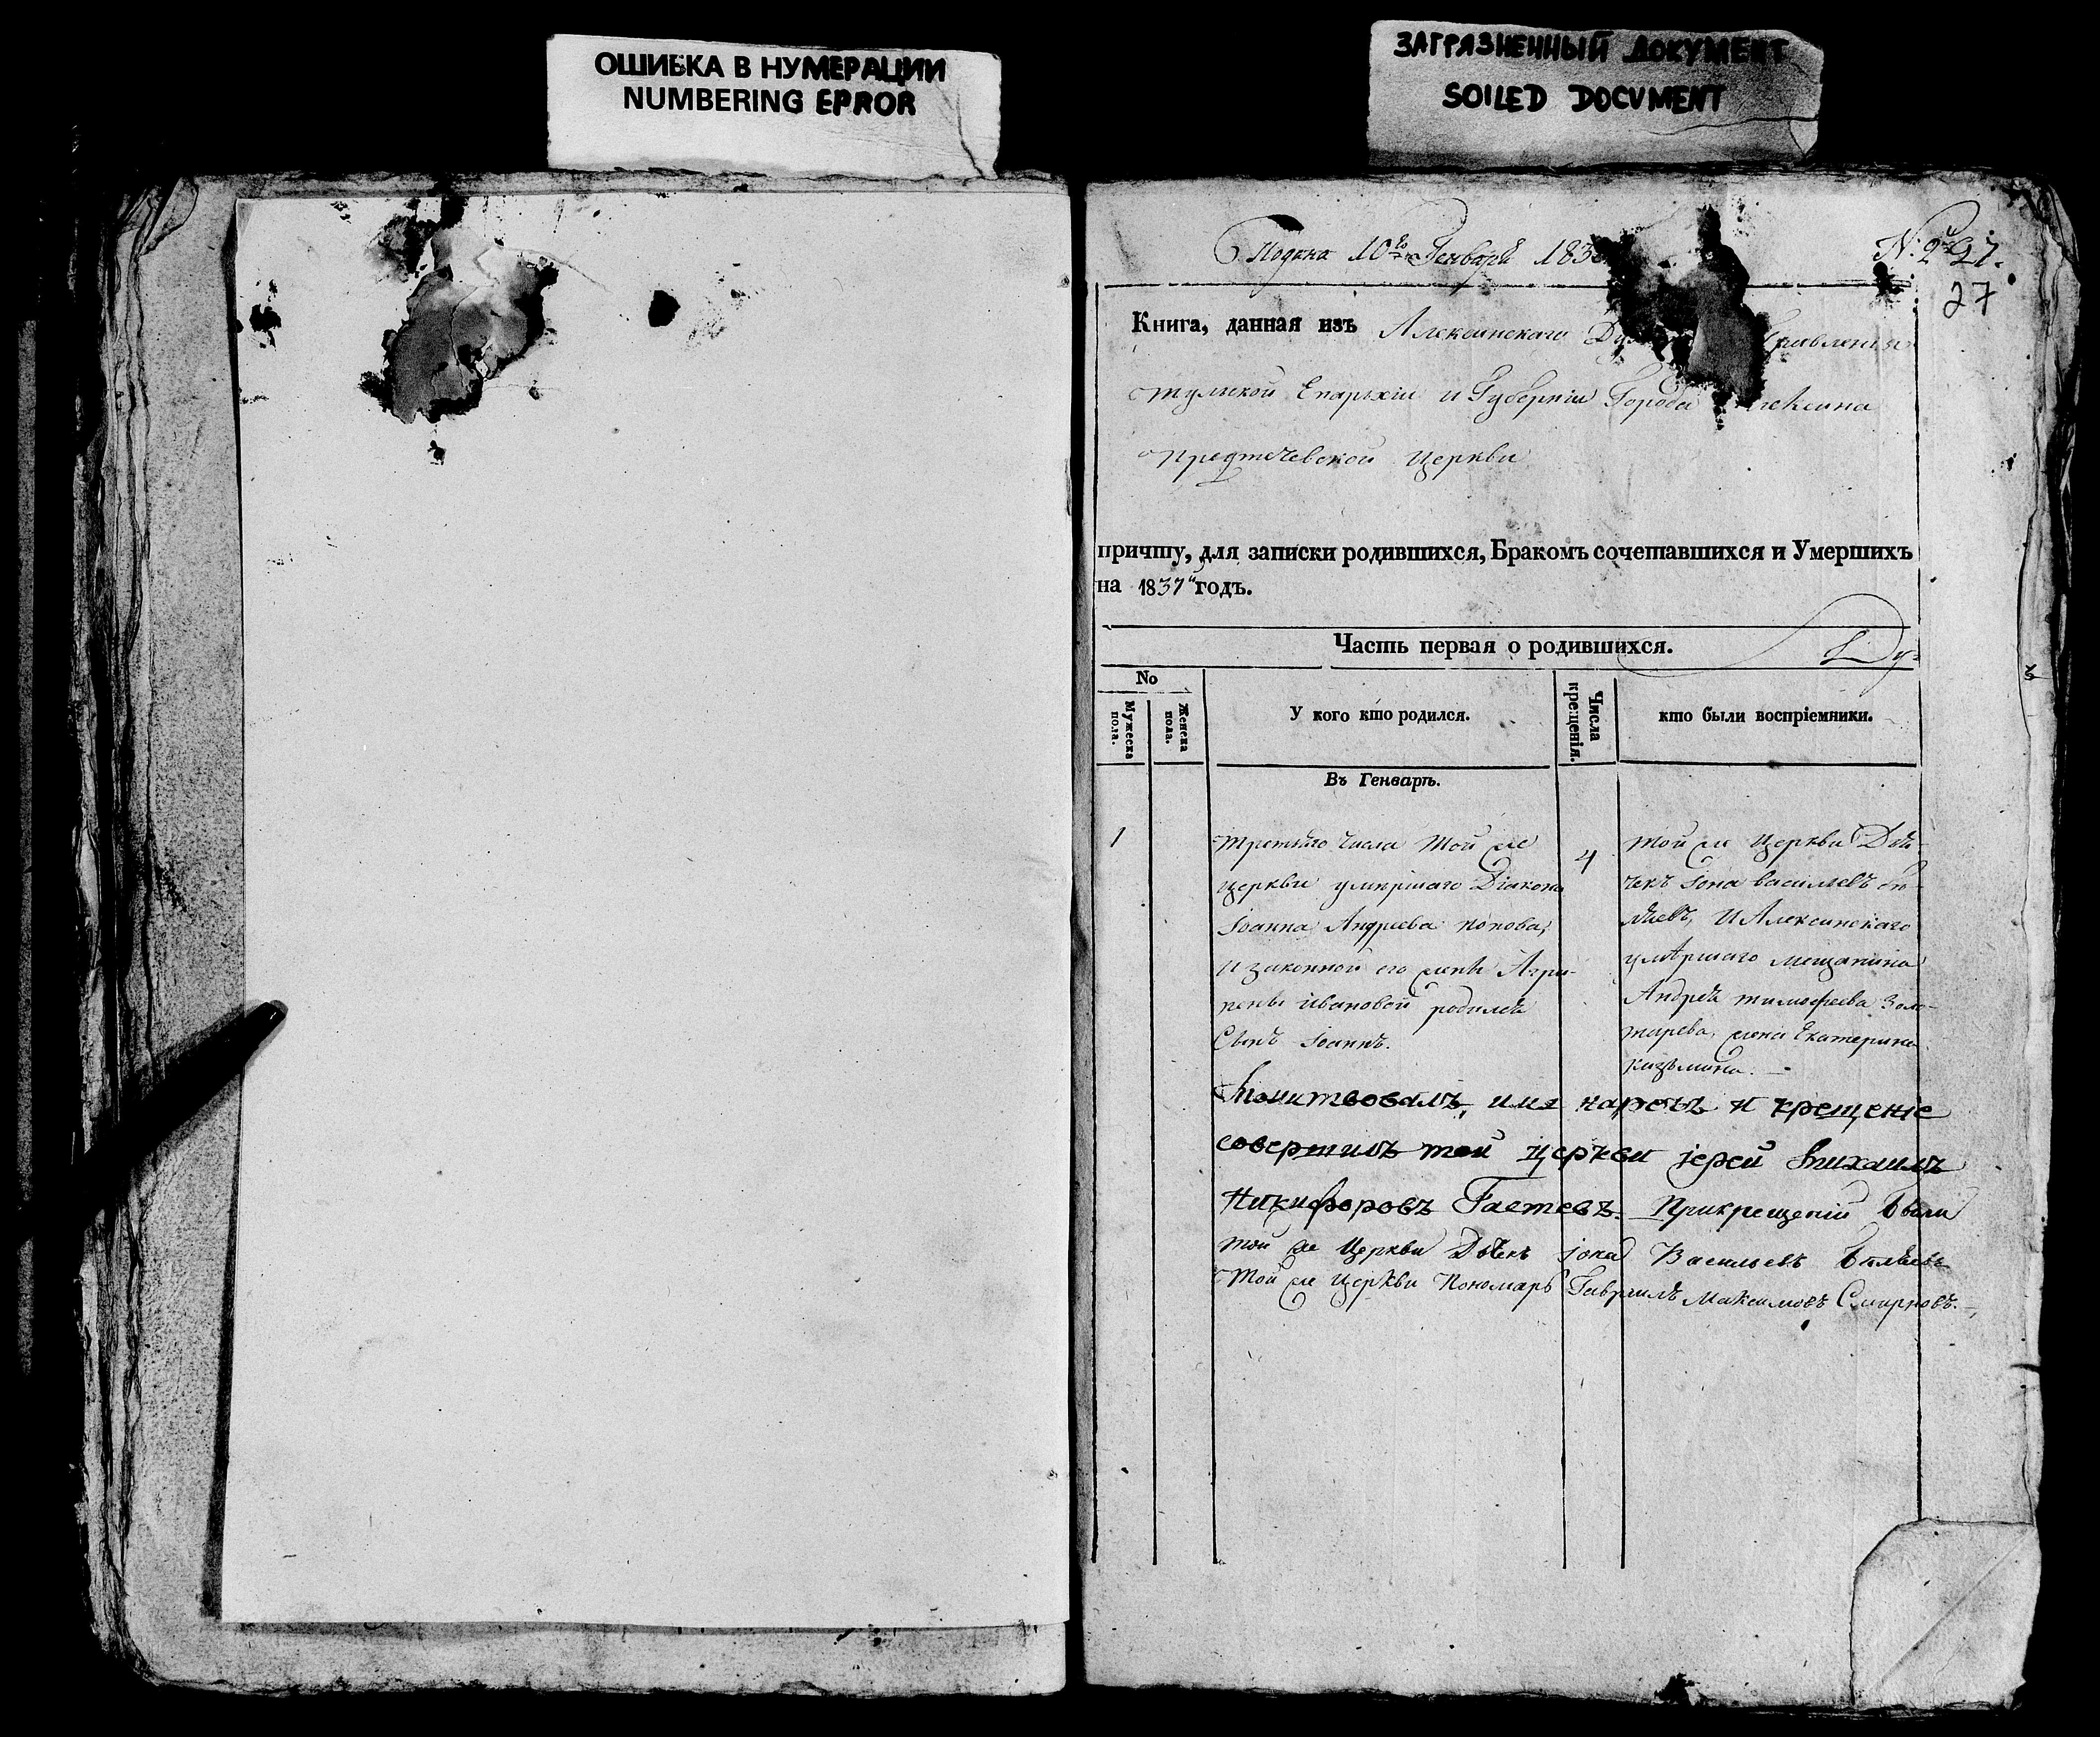 ОШИБКА В НУМЕРАЦИИ
NUMBERING ЕРROR
ЗАГРЯЗНЕННЫЙ ДОКУМЕНТ
SOILED DOCVMENT
Подана 10го Генваря 183
N: 27.
27
Книга, данная изъ Алексинскаго Ду правленія
Тульской Епархіи и Губерніи Города лексина
Предтечевской Церкви
причту, для записки родившихся, Бракомъ сочетавшихся и Умершихъ
на 1837 годъ.
Часть первая о родившихся.
Ду=
No
Мужеска пола.
Женска пола.
У кого кто родился.
Числа крещенія.
кто были воспріемники.
Въ Генварѣ.
1
Третьяго числа той же
церкви умершаго Діакона
Іоанна Андреева Попова,
и законной его жены Агри-
пены Ивановой родился
Сынъ Іоаннъ.
4
той же Церкви Дья-
чекъ Іона Васильевъ Бѣ-
ляевъ, и Алексинскаго
умершаго мещанина
Андрея Тимофеева Золо-
тарева, жена Екатерина
Кузьмина.
Молитвовалъ, имя нарекъ и крещеніе
совершилъ той церкви іерей Михаилъ
Никифоровъ Гастевъ. При крещеніи были
той же Церкви Дьячекъ Іона Васильевъ Бѣляевъ
Той же Церкви Пономарь Гавріилъ Максимовъ Смирновъ.